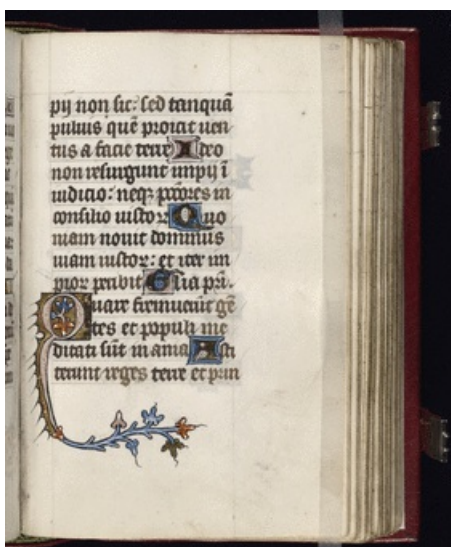 pij non sic: sed tanquā
pulvis quē proicit uen
tus a facie terre Ideo
non resurgunt impij ī
iudicio: neqꝫ pc̄c̄ores in
consilio iustoꝝ Quo
niam novit dominus
uiam iustoꝝ: et iter im
pioꝝ peribit Glīa pr̄i.
Quare fremuerūt gē
tes et populi me
ditati sūt in ania Asti
terunt reges terre et prin